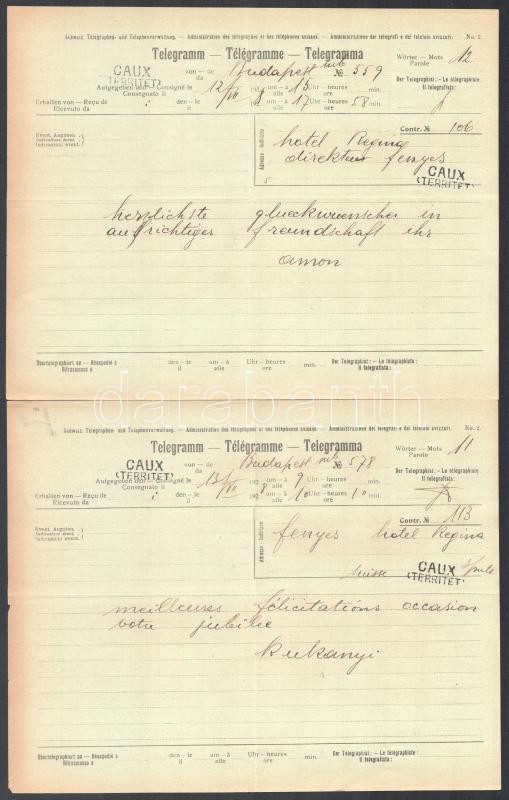 Schweiz. Telegraphen- und Telephonverwaltung. — Administration des télégraphes et des téléphones suisses. — Amministrazione dei telegrafi e dei telefoni svizzeri. No. 2.
Telegramm — Télégramme — Telegramma
Wörter — Mots 12
Parole
CAUX
(TERRITET)
von — de Budapest № 559
da
Der Telegraphist: — Le télégraphiste:
Il telegrafista:
Aufgegeben den — Consigné le 12/VII 192 8 um — à 15 Uhr — heures min.
Consegnato il alle ore
Erhalten von — Reçu de i den — le 17 58
Ricevuto da il
Contr. № 106
Event. Angaben.
Indications évent.
Indicazioni event.
Adresse - Indirizzo
hotel Regina
direkteur fenyes
CAUX
(TERRITET)
herzlichste glueckwuensche in
aufrichtiger freundschaft ihr
amon
Übertelegraphiert an — Réexpédié à den — le um — à Uhr — heures min.
Ritrasmesso a il alle ore
Der Telegraphist: — Le télégraphiste:
Il telegrafista:
darabanth
Schweiz. Telegraphen- und Telephonverwaltung. — Administration des télégraphes et des téléphones suisses. — Amministrazione dei telegrafi e dei telefoni svizzeri. No. 2.
Telegramm — Télégramme — Telegramma
Wörter — Mots 11
Parole
CAUX
(TERRITET)
von — de Budapest № 578
da
Der Telegraphist: — Le télégraphiste:
Il telegrafista:
Aufgegeben den — Consigné le 13/VII 192 8 um — à 9 Uhr — heures min.
Consegnato il alle ore
Erhalten von — Reçu de i den — le 10 10
Ricevuto da il
Contr. № 113
Event. Angaben.
Indications évent.
Indicazioni event.
Adresse - Indirizzo
fenyes hotel Regina
suisse
CAUX
(TERRITET)
meilleures félicitations occasion
votre jubilee
Kukanyi
Übertelegraphiert an — Réexpédié à den — le um — à Uhr — heures min.
Ritrasmesso a il alle ore
Der Telegraphist: — Le télégraphiste:
Il telegrafista: